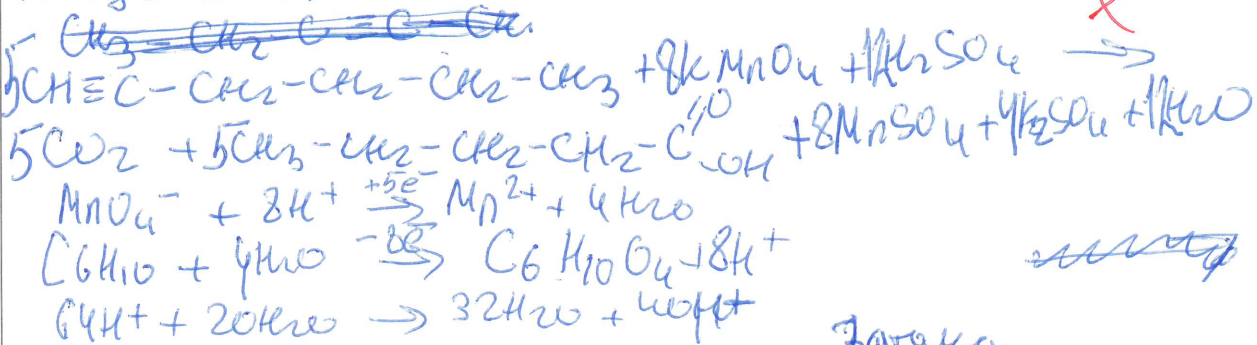 5CH≡C-CH₂-CH₂-CH₂-CH₃ +8KMnO₄ +12H₂SO₄ →
5CO₂ +5CH₃-CH₂-CH₂-CH₂-C(=O)-OH +8MnSO₄+4K₂SO₄+12H₂O
MnO₄⁻ + 8H⁺ +5e⁻→ Mn²⁺ + 4H₂O
C₆H₁₀ + 4H₂O -8e⁻→ C₆H₁₀O₄+8H⁺
64H⁺ + 20H₂O → 32H₂O + 40H⁺